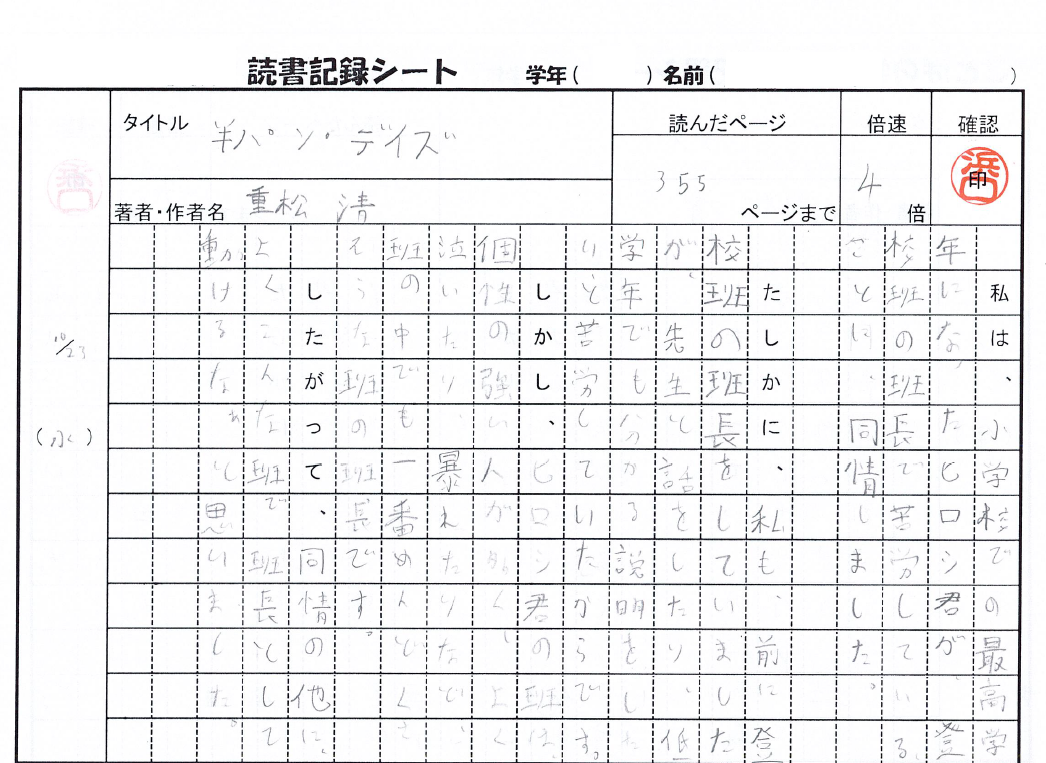 読書記録シート 学年( ) 名前( )
タイトル 半パン・デイズ
著者・作者名 重松 清
読んだページ 355 ページまで
倍速 4 倍
確認 印
10/23
(水)
私は、小学校での最高学
年になったヒロシ君が、登
校班の班長で苦労している
ことに、同情しました。
たしかに、私も、前に登
校班の班長をしていました
が、先生と話をしたり、低
学年でも分かる説明をした
りと苦労していたからです。
しかし、ヒロシ君の班は、
個性の強い人が多く、よく
泣いたり、暴れたりなど、
班の中でも一番めんどくさ
そうな班の班長です。
したがって、同情の他に、
よくこんな班で、班長として
動けるなぁと思いました。